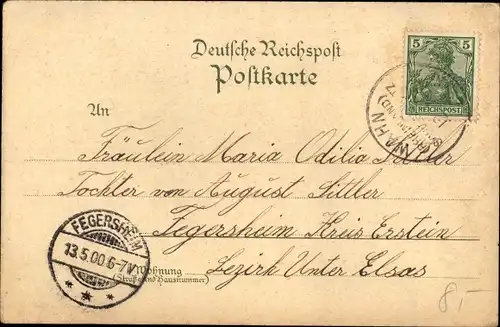 Deutsche Reichspost
Postkarte
5
REICHSPOST
WAHN
An
Fräulein Maria Odilia Sittler
Tochter von August Sittler
Fegersheim Kreis Erstein
Bezirk Unter Elsas
FEGERSHEIM
13.5.00.6-7
Wohnung
(Straße und Hausnummer)
8,-